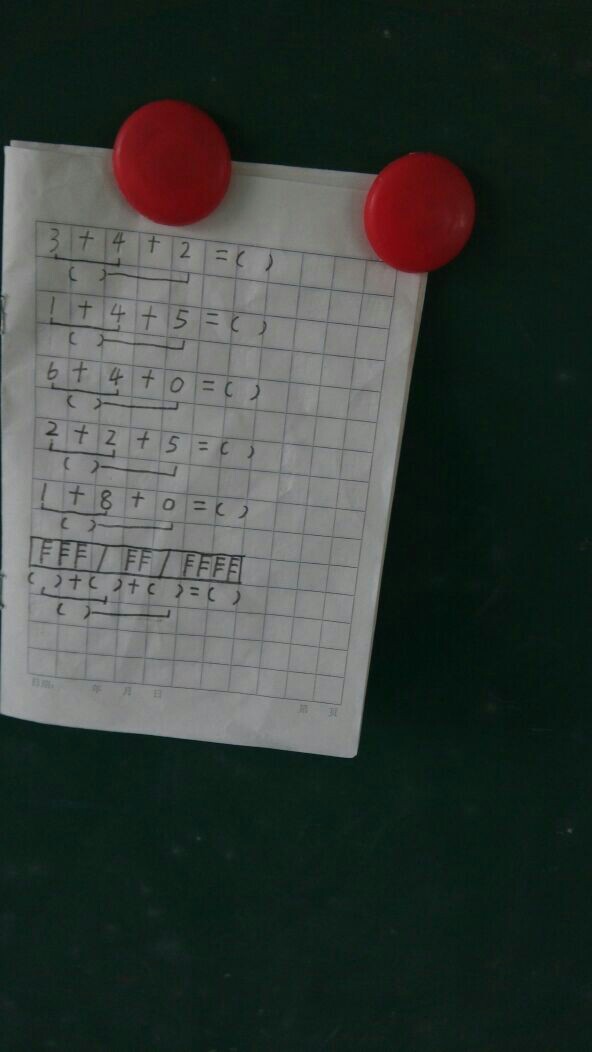 3 + 4 + 2 = ( )
( )
1 + 4 + 5 = ( )
( )
6 + 4 + 0 = ( )
( )
2 + 2 + 5 = ( )
( )
1 + 8 + 0 = ( )
( )
FFF / FF / FFFF
( ) + ( ) + ( ) = ( )
( )
日期: 年 月 日 第 页